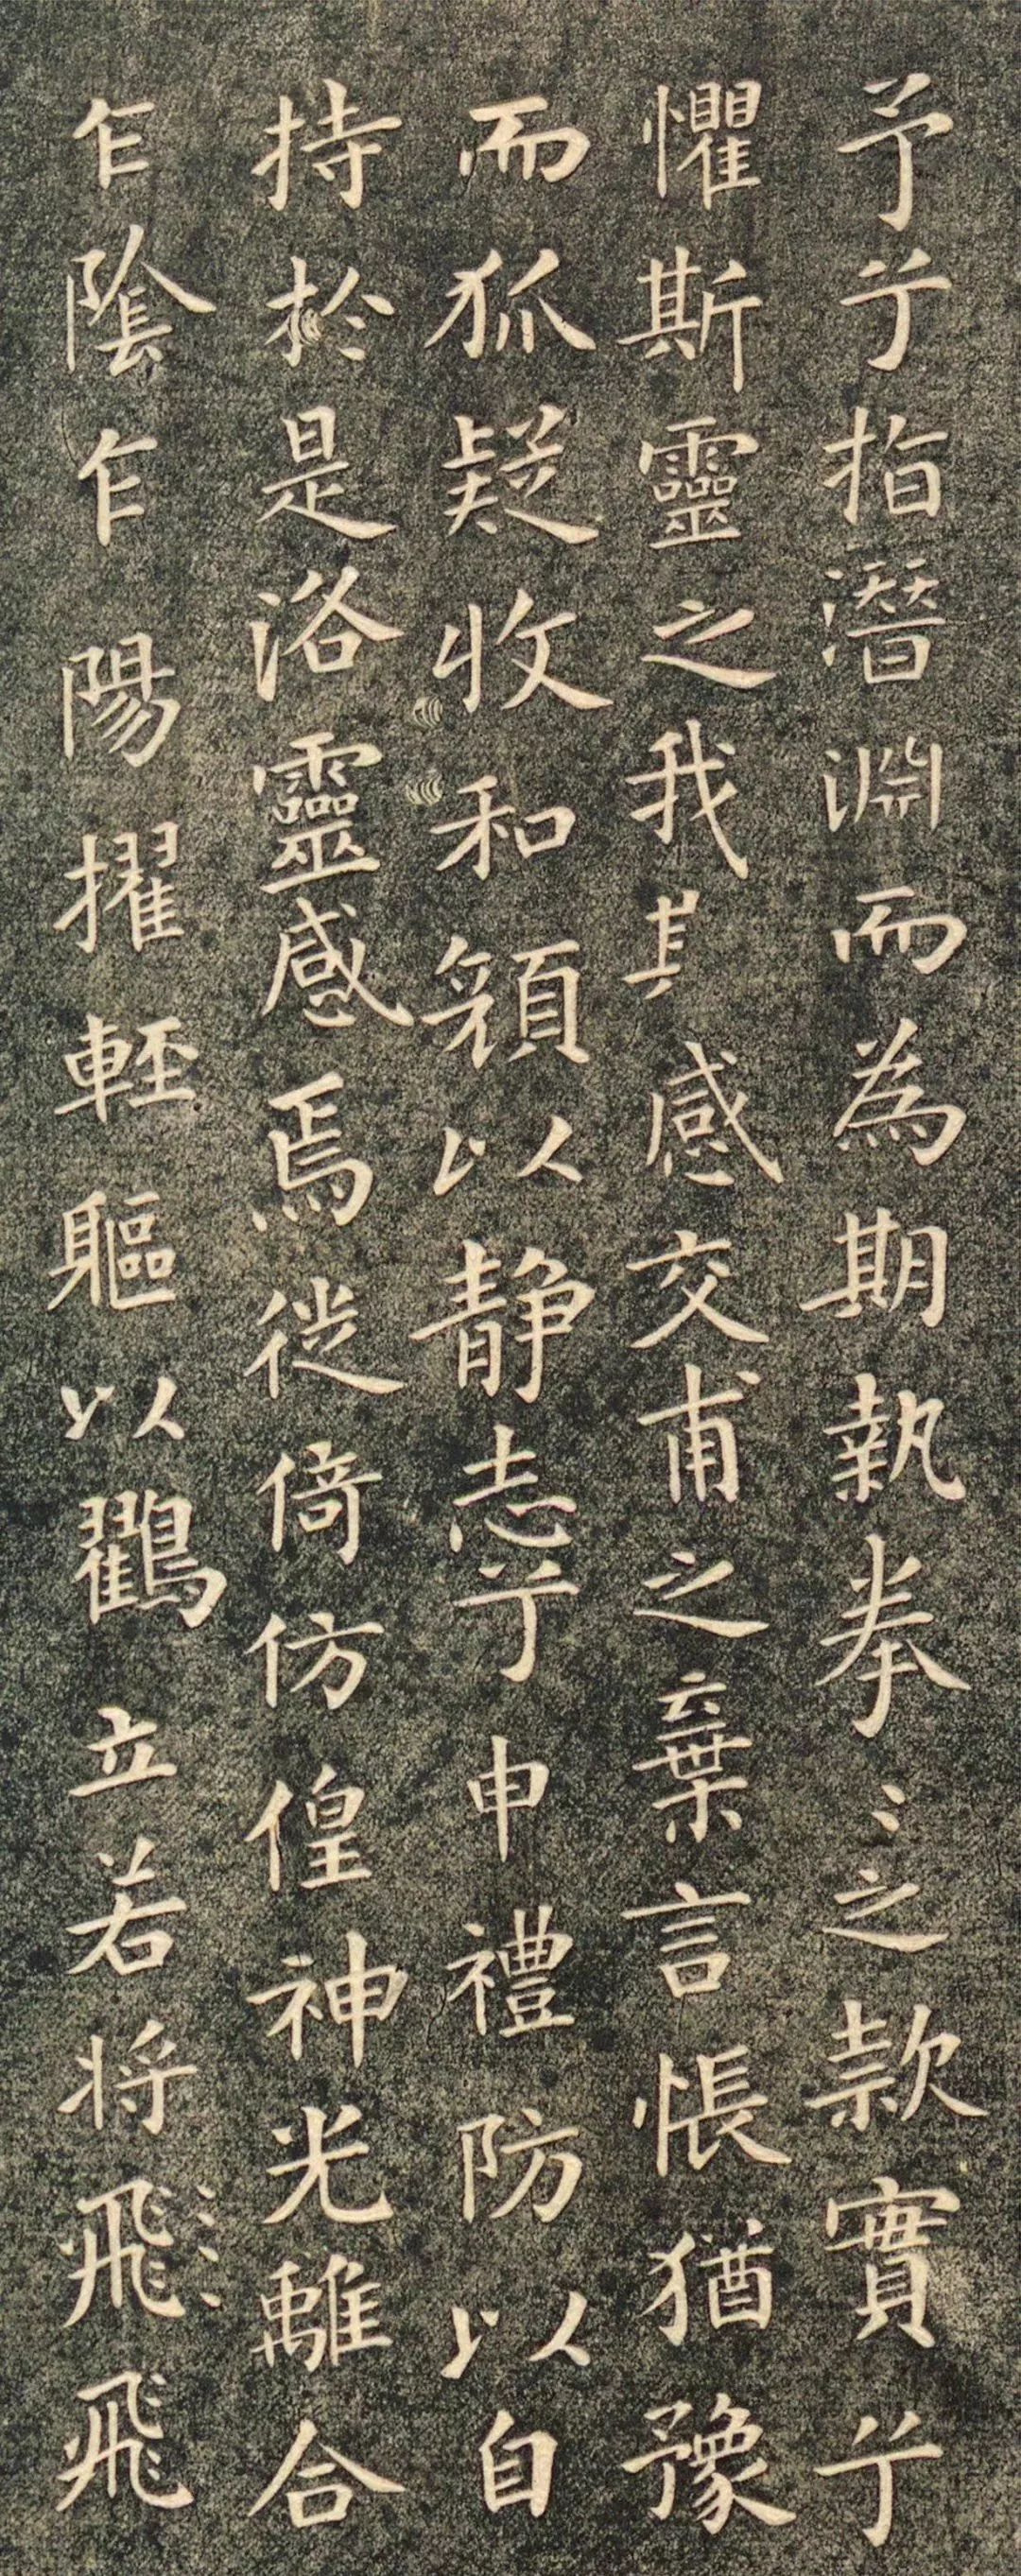 予兮指潛淵而為期執拳〻之款實兮
懼斯靈之我其感交甫之棄言悵猶豫
而狐疑收和顏以静志兮申禮防以自
持於是洛靈感焉徙倚仿偟神光離合
乍陰乍陽擢輕軀以鸐立若将飛飛